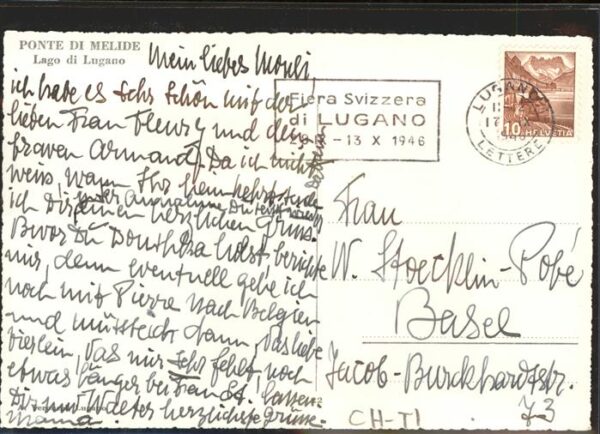 PONTE DI MELIDE
Lago di Lugano
Mein liebes Mouli,
ich habe es sehr schön mit der
lieben Frau Fleury und dem
braven Armand. Da ich nicht
weis, wann Ihr heimkehrt, sende
ich Dir einen herzlichen Gruss.
Bevor Du holst, berichte
mir, denn eventuell gehe ich
noch mit Pierre nach Belgien
und müsste ich dann, das liebe
Tierlein, das mir sehr fehlt, noch
etwas länger bei Frau St. lassen
Dir und Walter herzlichste Grüsse
Mama.
Fiera Svizzera
di LUGANO
- 13 X 1946
LUGANO
17
LETTERE
10 HELVETIA
Frau
W. Stoecklin-Pobé
Basel
Jacob-Burckhardtstr.
73
CH-TI